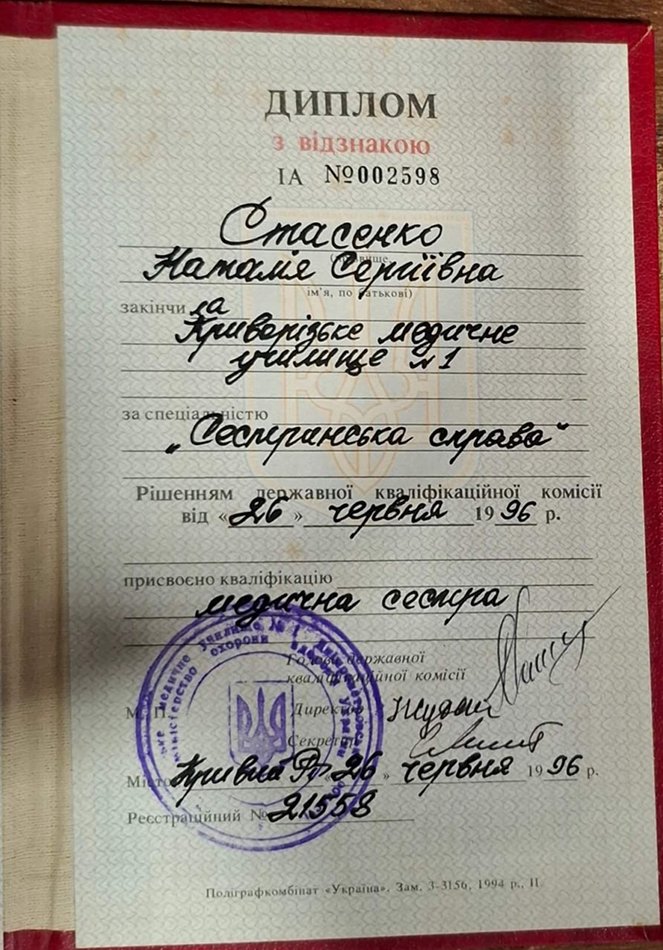 ДИПЛОМ
з відзнакою
ІА №002598
Стасенко
(прізвище,
Наталія Сергіївна
ім'я, по батькові)
закінчила
Криворізьке медичне
училище №1
за спеціальністю
„Сестринська справа"
Рішенням державної кваліфікаційної комісії
від «26» червня 1996 р.
присвоєно кваліфікацію
медична сестра
Голова державної
кваліфікаційної комісії
М. П.
Директор
Секретар
Місто Кривий Ріг 26 » червня 1996 р.
Реєстраційний № 21558
медичне училище № 1
Міністерство охорони здоров'я України
Поліграфкомбінат «Україна». Зам. 3-3156, 1994 р., II.